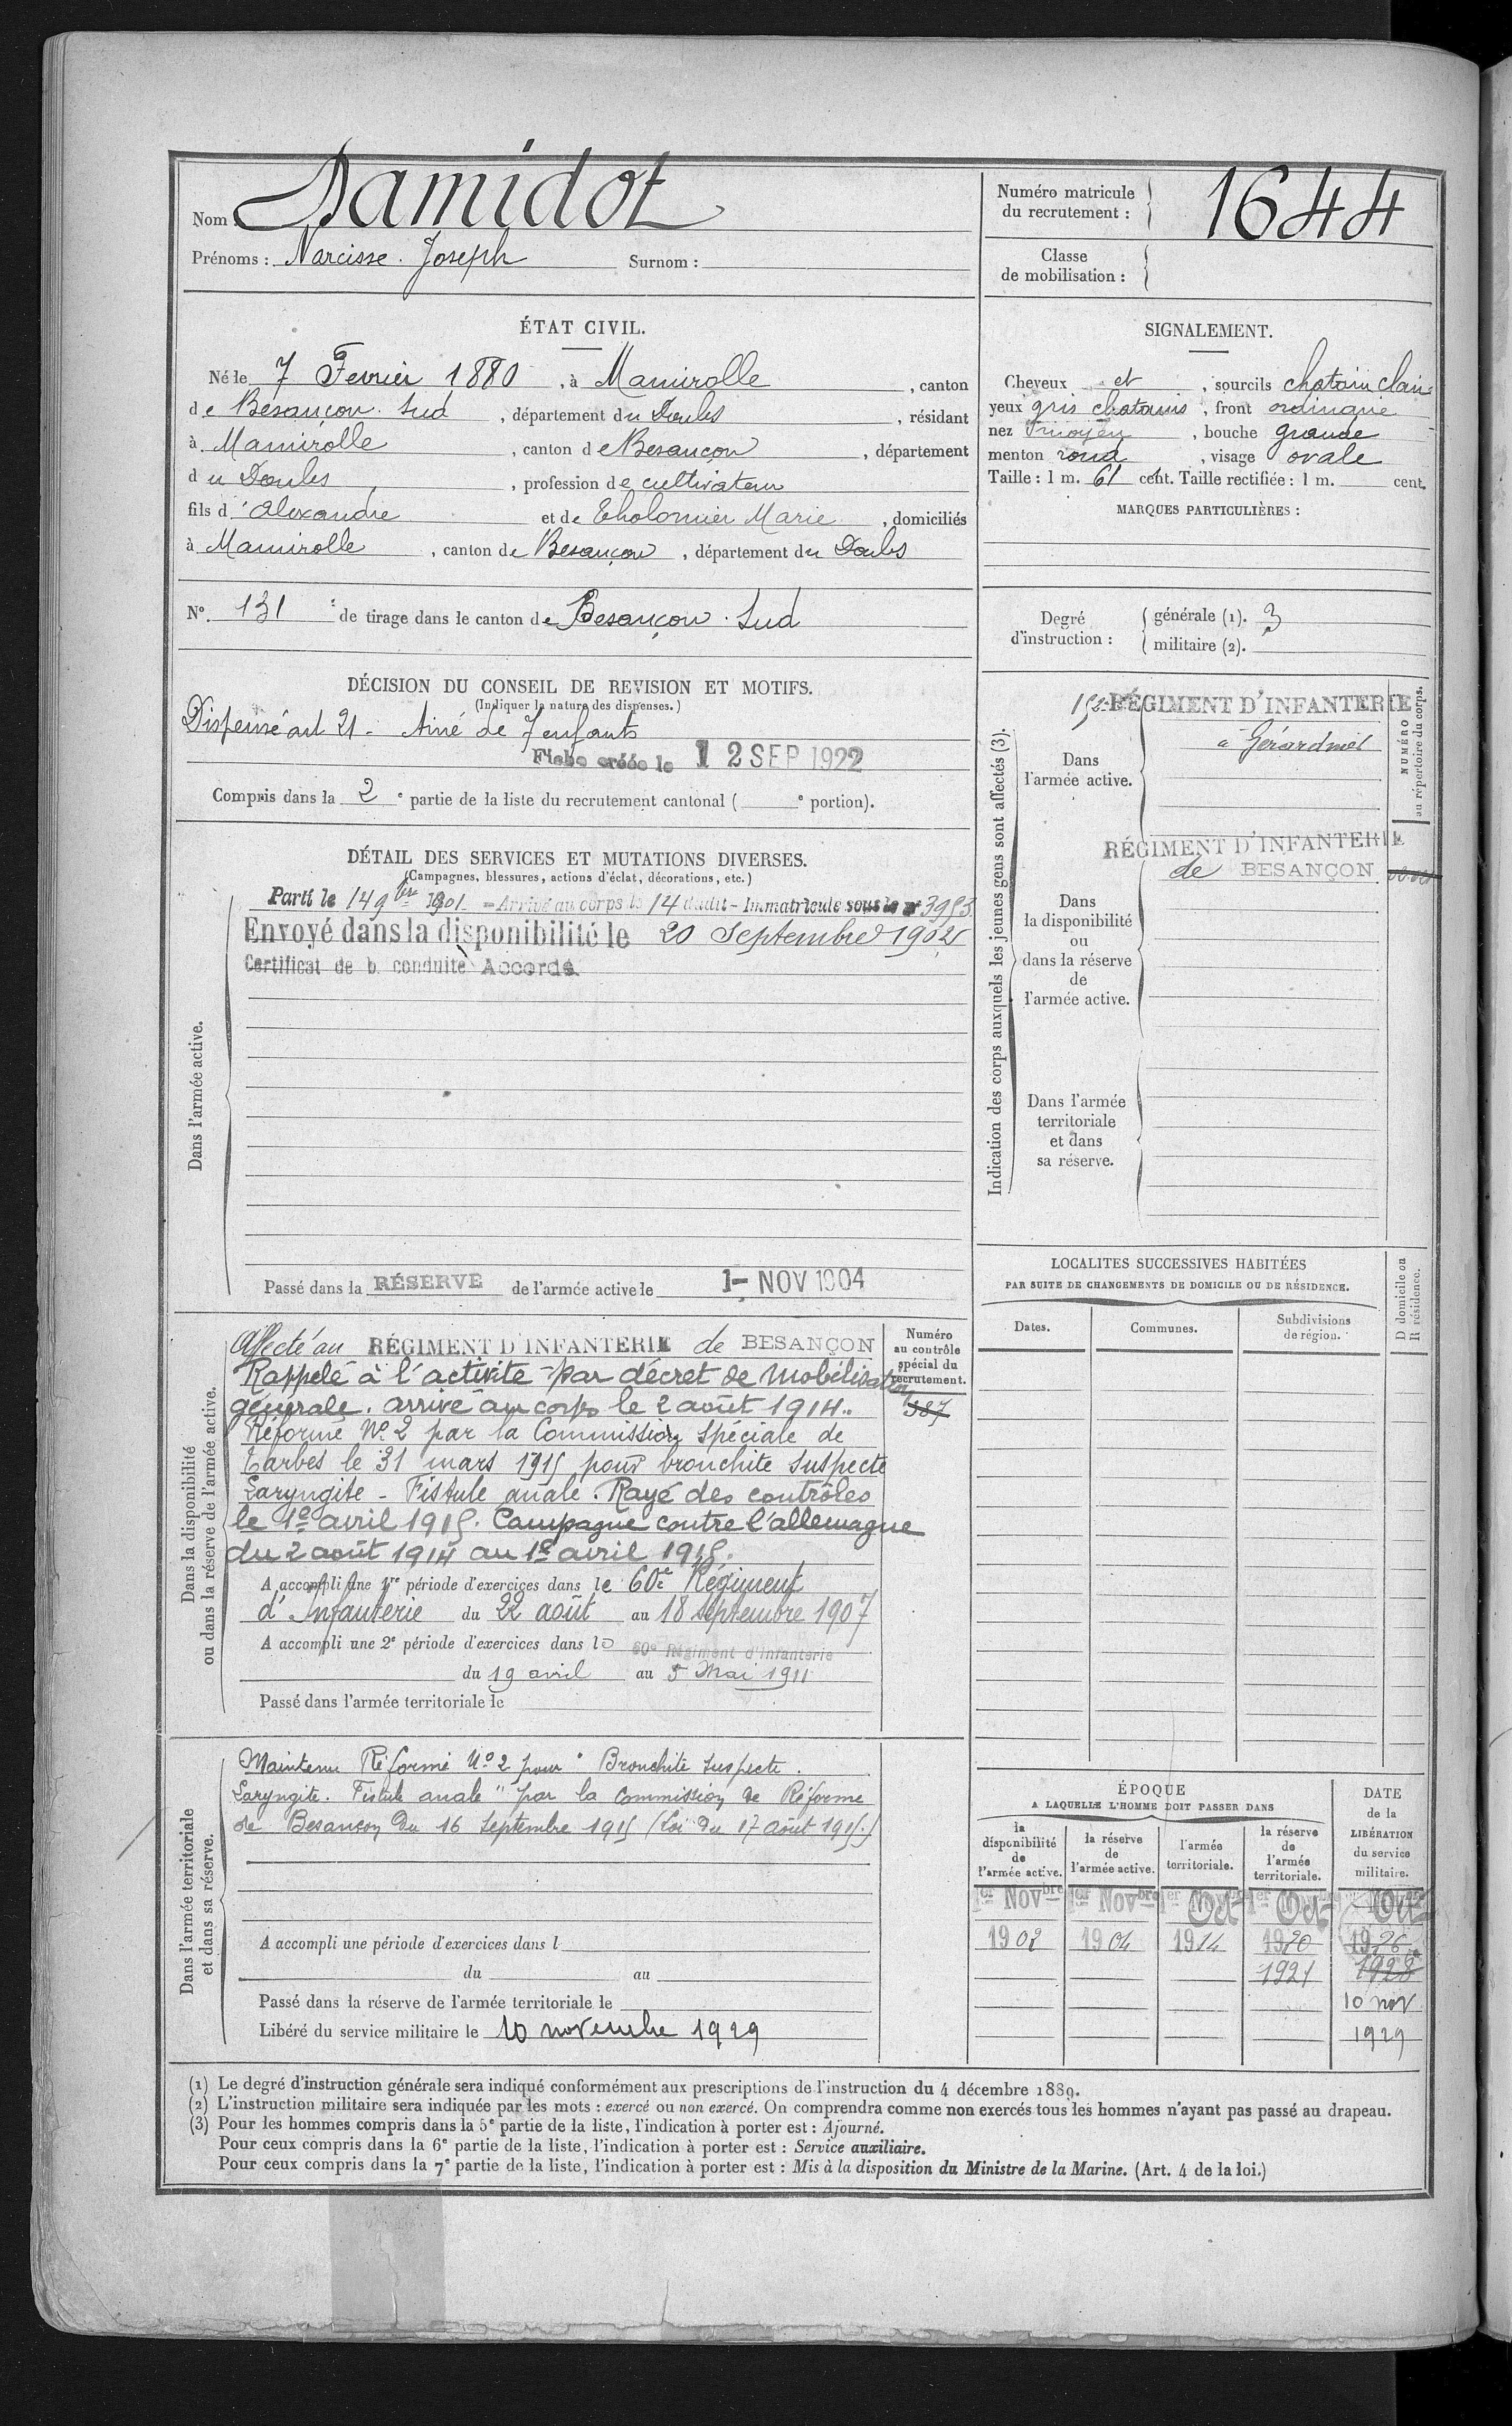 Nom : Damidot
Prénoms : Narcisse Joseph Surnom :
Numéro matricule du recrutement : 1644
Classe de mobilisation :
ÉTAT CIVIL.
Né le 7 Fevrier 1880, à Mamirolle, canton
de Besançon Sud, département du Doubs, résidant
à Mamirolle, canton de Besançon, département
du Doubs, profession de cultivateur
fils d'Alexandre et de Tholomier Marie, domiciliés
à Mamirolle, canton de Besançon, département du Doubs
N° 131 de tirage dans le canton de Besançon Sud
SIGNALEMENT.
Cheveux et, sourcils chatain clair
yeux gris chatains, front ordinaire
nez moyen, bouche grande
menton rond, visage ovale
Taille : 1 m. 61 cent. Taille rectifiée : 1 m. cent.
MARQUES PARTICULIÈRES :
Degré d'instruction : générale (1). 3
militaire (2).
DÉCISION DU CONSEIL DE REVISION ET MOTIFS.
(Indiquer la nature des dispenses.)
Dispensé art 21 - Ainé de 7 enfants
Fiche créée le 12 SEP 1922
Compris dans la 2e partie de la liste du recrutement cantonal ( e portion).
DÉTAIL DES SERVICES ET MUTATIONS DIVERSES.
(Campagnes, blessures, actions d'éclat, décorations, etc.)
Dans l'armée active.
Parti le 14 9bre 1901 - Arrivé au corps le 14 dudit - Immatriculé sous le n° 3953
Envoyé dans la disponibilité le 20 Septembre 1902
Certificat de b. conduite Accordé
Passé dans la RÉSERVE de l'armée active le 1- NOV 1904
Indication des corps auxquels les jeunes gens sont affectés (3).
NUMÉRO au répertoire du corps.
Dans l'armée active.
RÉGIMENT D'INFANTERIE
à Gérardmer
Dans la disponibilité ou dans la réserve de l'armée active.
RÉGIMENT D'INFANTERIE
de BESANÇON
Dans l'armée territoriale et dans sa réserve.
LOCALITES SUCCESSIVES HABITÉES
PAR SUITE DE CHANGEMENTS DE DOMICILE OU DE RÉSIDENCE.
Dates. Communes. Subdivisions de région. D domicile ou R résidence.
Dans la disponibilité ou dans la réserve de l'armée active.
Numéro au contrôle spécial du recrutement.
387
Affecté au RÉGIMENT D'INFANTERIE de BESANÇON
Rappelé à l'activité par décret de mobilisation
générale. arrivé au corps le 2 août 1914.
Réformé N° 2 par la Commission Spéciale de
Tarbes le 31 mars 1915 pour bronchite suspecte
Laryngite - Fistule anale. Rayé des contrôles
le 1er avril 1915. Campagne contre l'allemagne
du 2 août 1914 au 1er avril 1915.
A accompli une 1re période d'exercices dans le 60e Régiment
d'Infanterie du 22 août au 18 septembre 1907
A accompli une 2e période d'exercices dans le 60e Régiment d'Infanterie
du 19 avril au 5 Mai 1911
Passé dans l'armée territoriale le
Dans l'armée territoriale et dans sa réserve.
Maintenu Réformé N° 2 pour "Bronchite suspecte.
Laryngite. Fistule anale" par la Commission de Réforme
de Besançon du 16 Septembre 1915 (Loi du 17 Août 1915.)
A accompli une période d'exercices dans l
du au
Passé dans la réserve de l'armée territoriale le
Libéré du service militaire le 10 novembre 1929
ÉPOQUE
A LAQUELLE L'HOMME DOIT PASSER DANS
la disponibilité de l'armée active. la réserve de l'armée active. l'armée territoriale. la réserve de l'armée territoriale.
DATE de la LIBÉRATION du service militaire.
1er Novbre 1er Novbre 1er Oct 1er Oct Oct
1902 1904 1914 1920 1926
1921 1928
10 nov
1929
(1) Le degré d'instruction générale sera indiqué conformément aux prescriptions de l'instruction du 4 décembre 1889.
(2) L'instruction militaire sera indiquée par les mots : exercé ou non exercé. On comprendra comme non exercés tous les hommes n'ayant pas passé au drapeau.
(3) Pour les hommes compris dans la 5e partie de la liste, l'indication à porter est : Ajourné.
Pour ceux compris dans la 6e partie de la liste, l'indication à porter est : Service auxiliaire.
Pour ceux compris dans la 7e partie de la liste, l'indication à porter est : Mis à la disposition du Ministre de la Marine. (Art. 4 de la loi.)